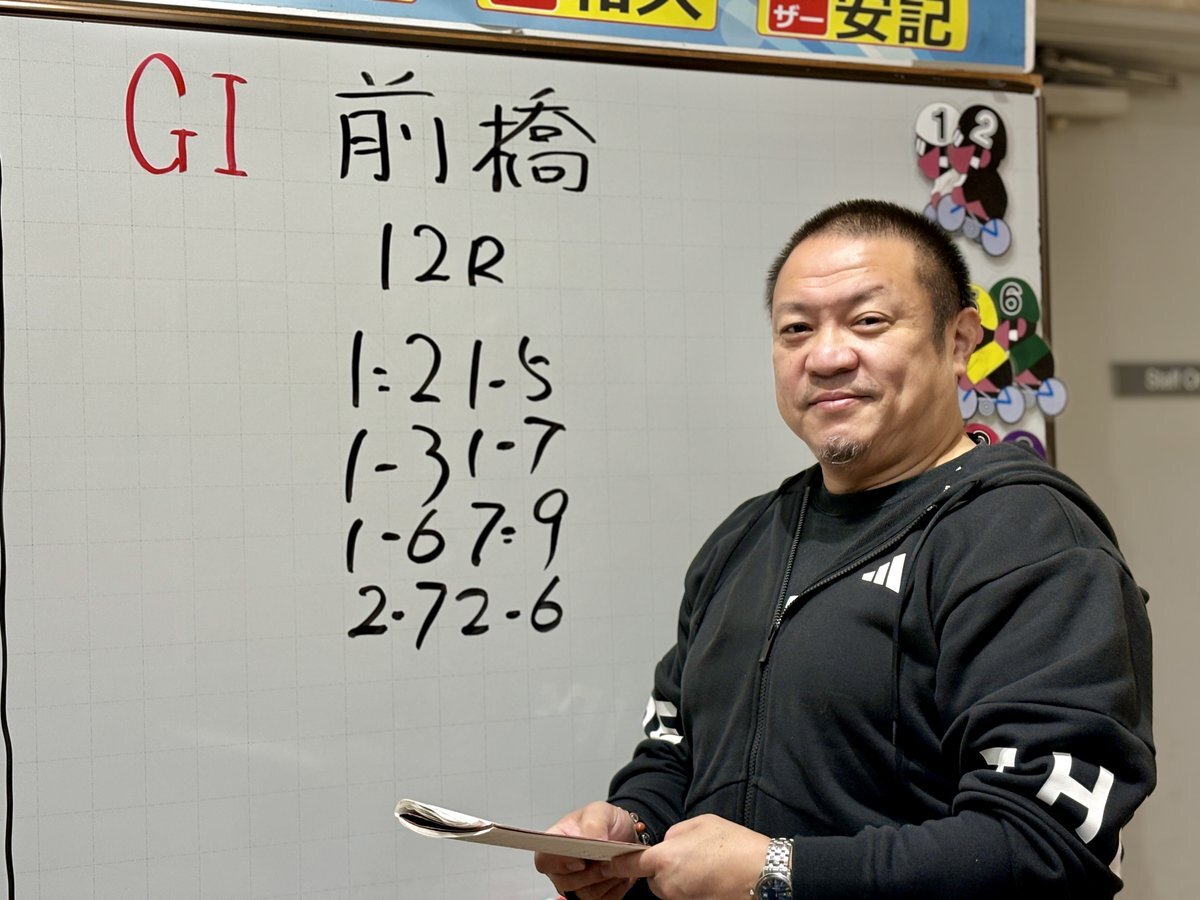 ザー 安記
GI 前橋
12R
1=2 1-5
1-3 1-7
1-6 7=9
2-7 2-6
1 2
6
Staff